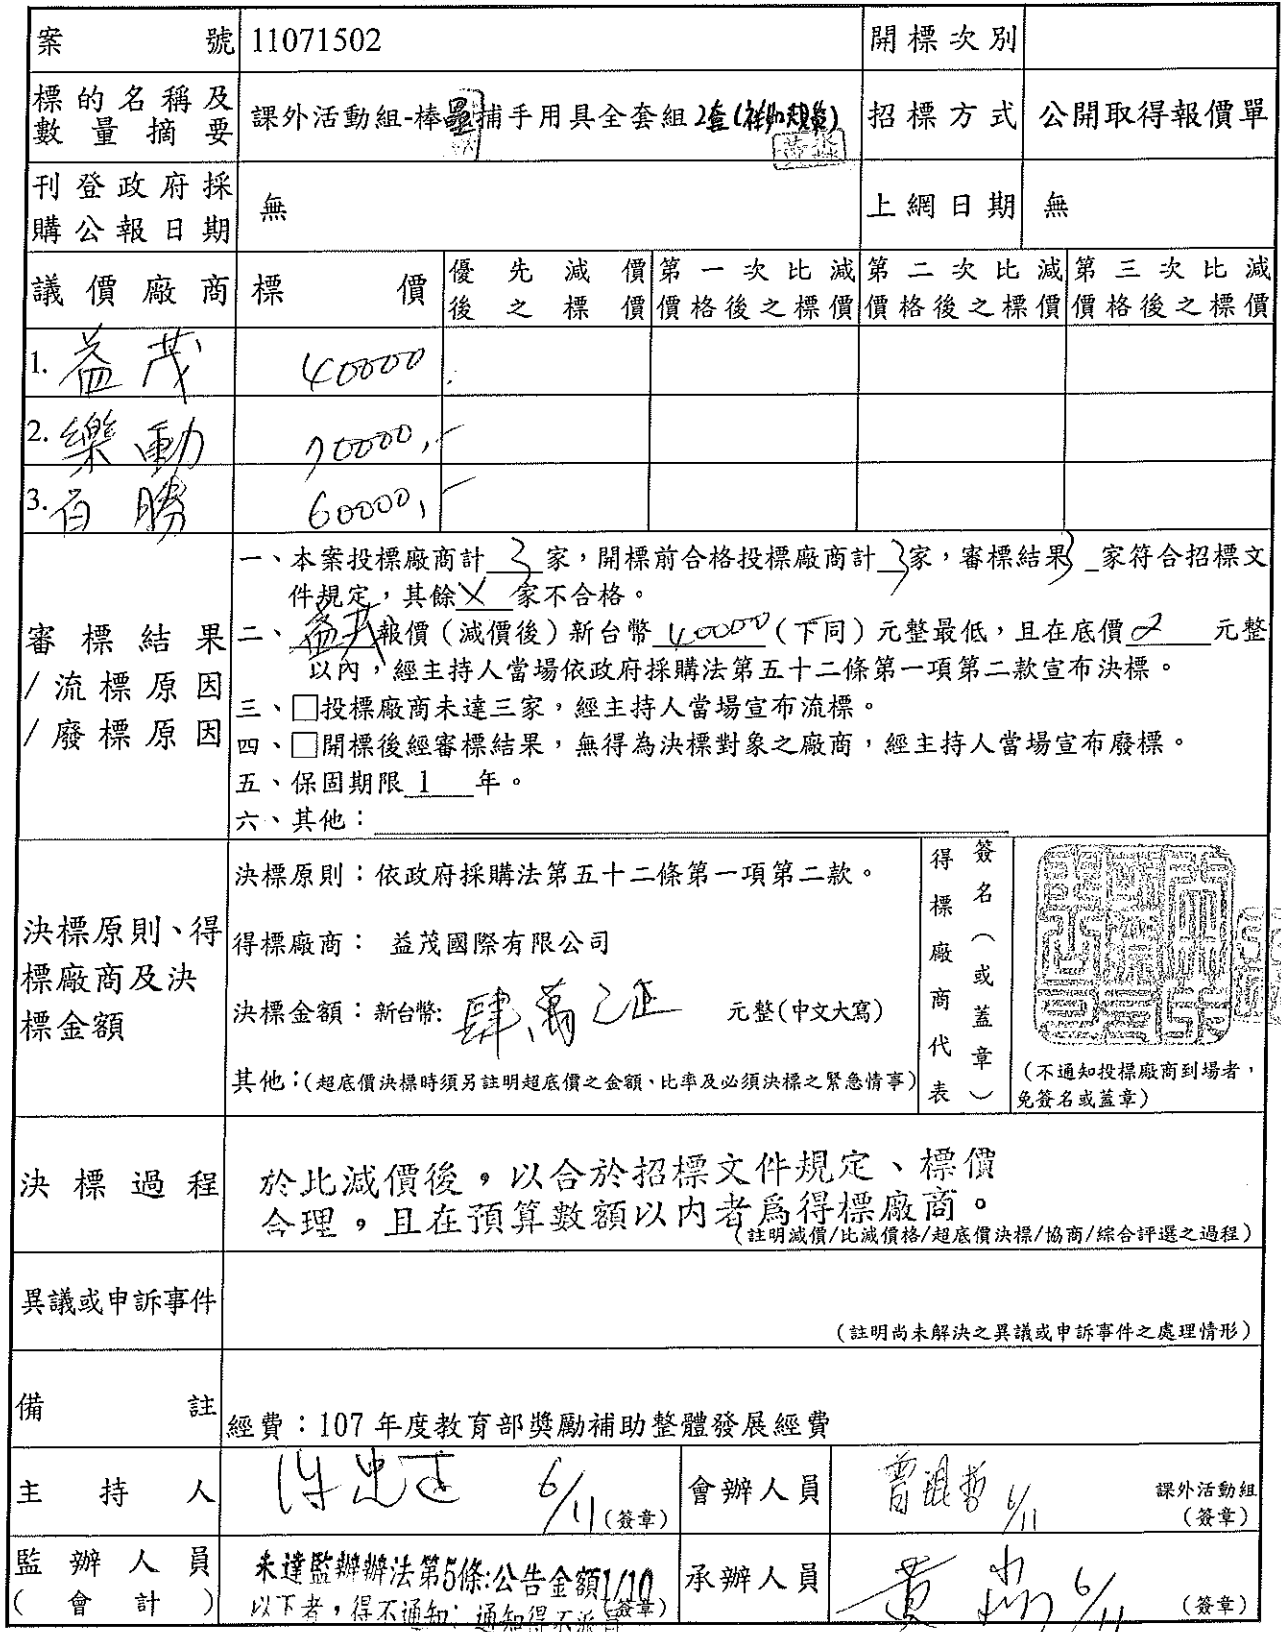 案號 11071502 開標次別
標的名稱及數量摘要 課外活動組-棒壘捕手用具全套組2套(詳如規範) 招標方式 公開取得報價單
刊登政府採購公報日期 無 上網日期 無
議價廠商 標價 優先減價後之標價 第一次比減價格後之標價 第二次比減價格後之標價 第三次比減價格後之標價
1. 益茂 40000
2. 樂動 70000,-
3. 百勝 60000,-
審標結果/流標原因/廢標原因
一、本案投標廠商計 3 家，開標前合格投標廠商計 3 家，審標結果 3 家符合招標文
件規定，其餘 X 家不合格。
二、益茂報價（減價後）新台幣 40000（下同）元整最低，且在底價 元整
以內，經主持人當場依政府採購法第五十二條第一項第二款宣布決標。
三、□投標廠商未達三家，經主持人當場宣布流標。
四、□開標後經審標結果，無得為決標對象之廠商，經主持人當場宣布廢標。
五、保固期限 1 年。
六、其他：
決標原則、得標廠商及決標金額
決標原則：依政府採購法第五十二條第一項第二款。
得標廠商： 益茂國際有限公司
決標金額：新台幣: 肆萬元正 元整(中文大寫)
其他：(超底價決標時須另註明超底價之金額、比率及必須決標之緊急情事)
得標廠商代表
簽名（或蓋章）
(不通知投標廠商到場者，
免簽名或蓋章)
決標過程
於比減價後，以合於招標文件規定、標價
合理，且在預算數額以內者為得標廠商。
(註明減價/比減價格/超底價決標/協商/綜合評選之過程)
異議或申訴事件
(註明尚未解決之異議或申訴事件之處理情形)
備註 經費：107 年度教育部獎勵補助整體發展經費
主持人 6/11 (簽章) 會辦人員 曾琨哲 6/11 課外活動組
(簽章)
監辦人員
(會計)
未達監辦辦法第5條:公告金額1/10
以下者，得不通知；通知得不派員
(簽章)
承辦人員 黃 6/11 (簽章)